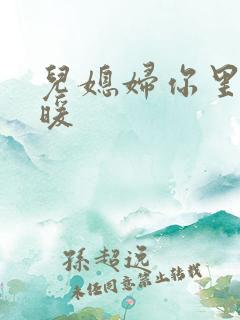 兒媳婦你里
暖
孫超远
未经同意禁止转载